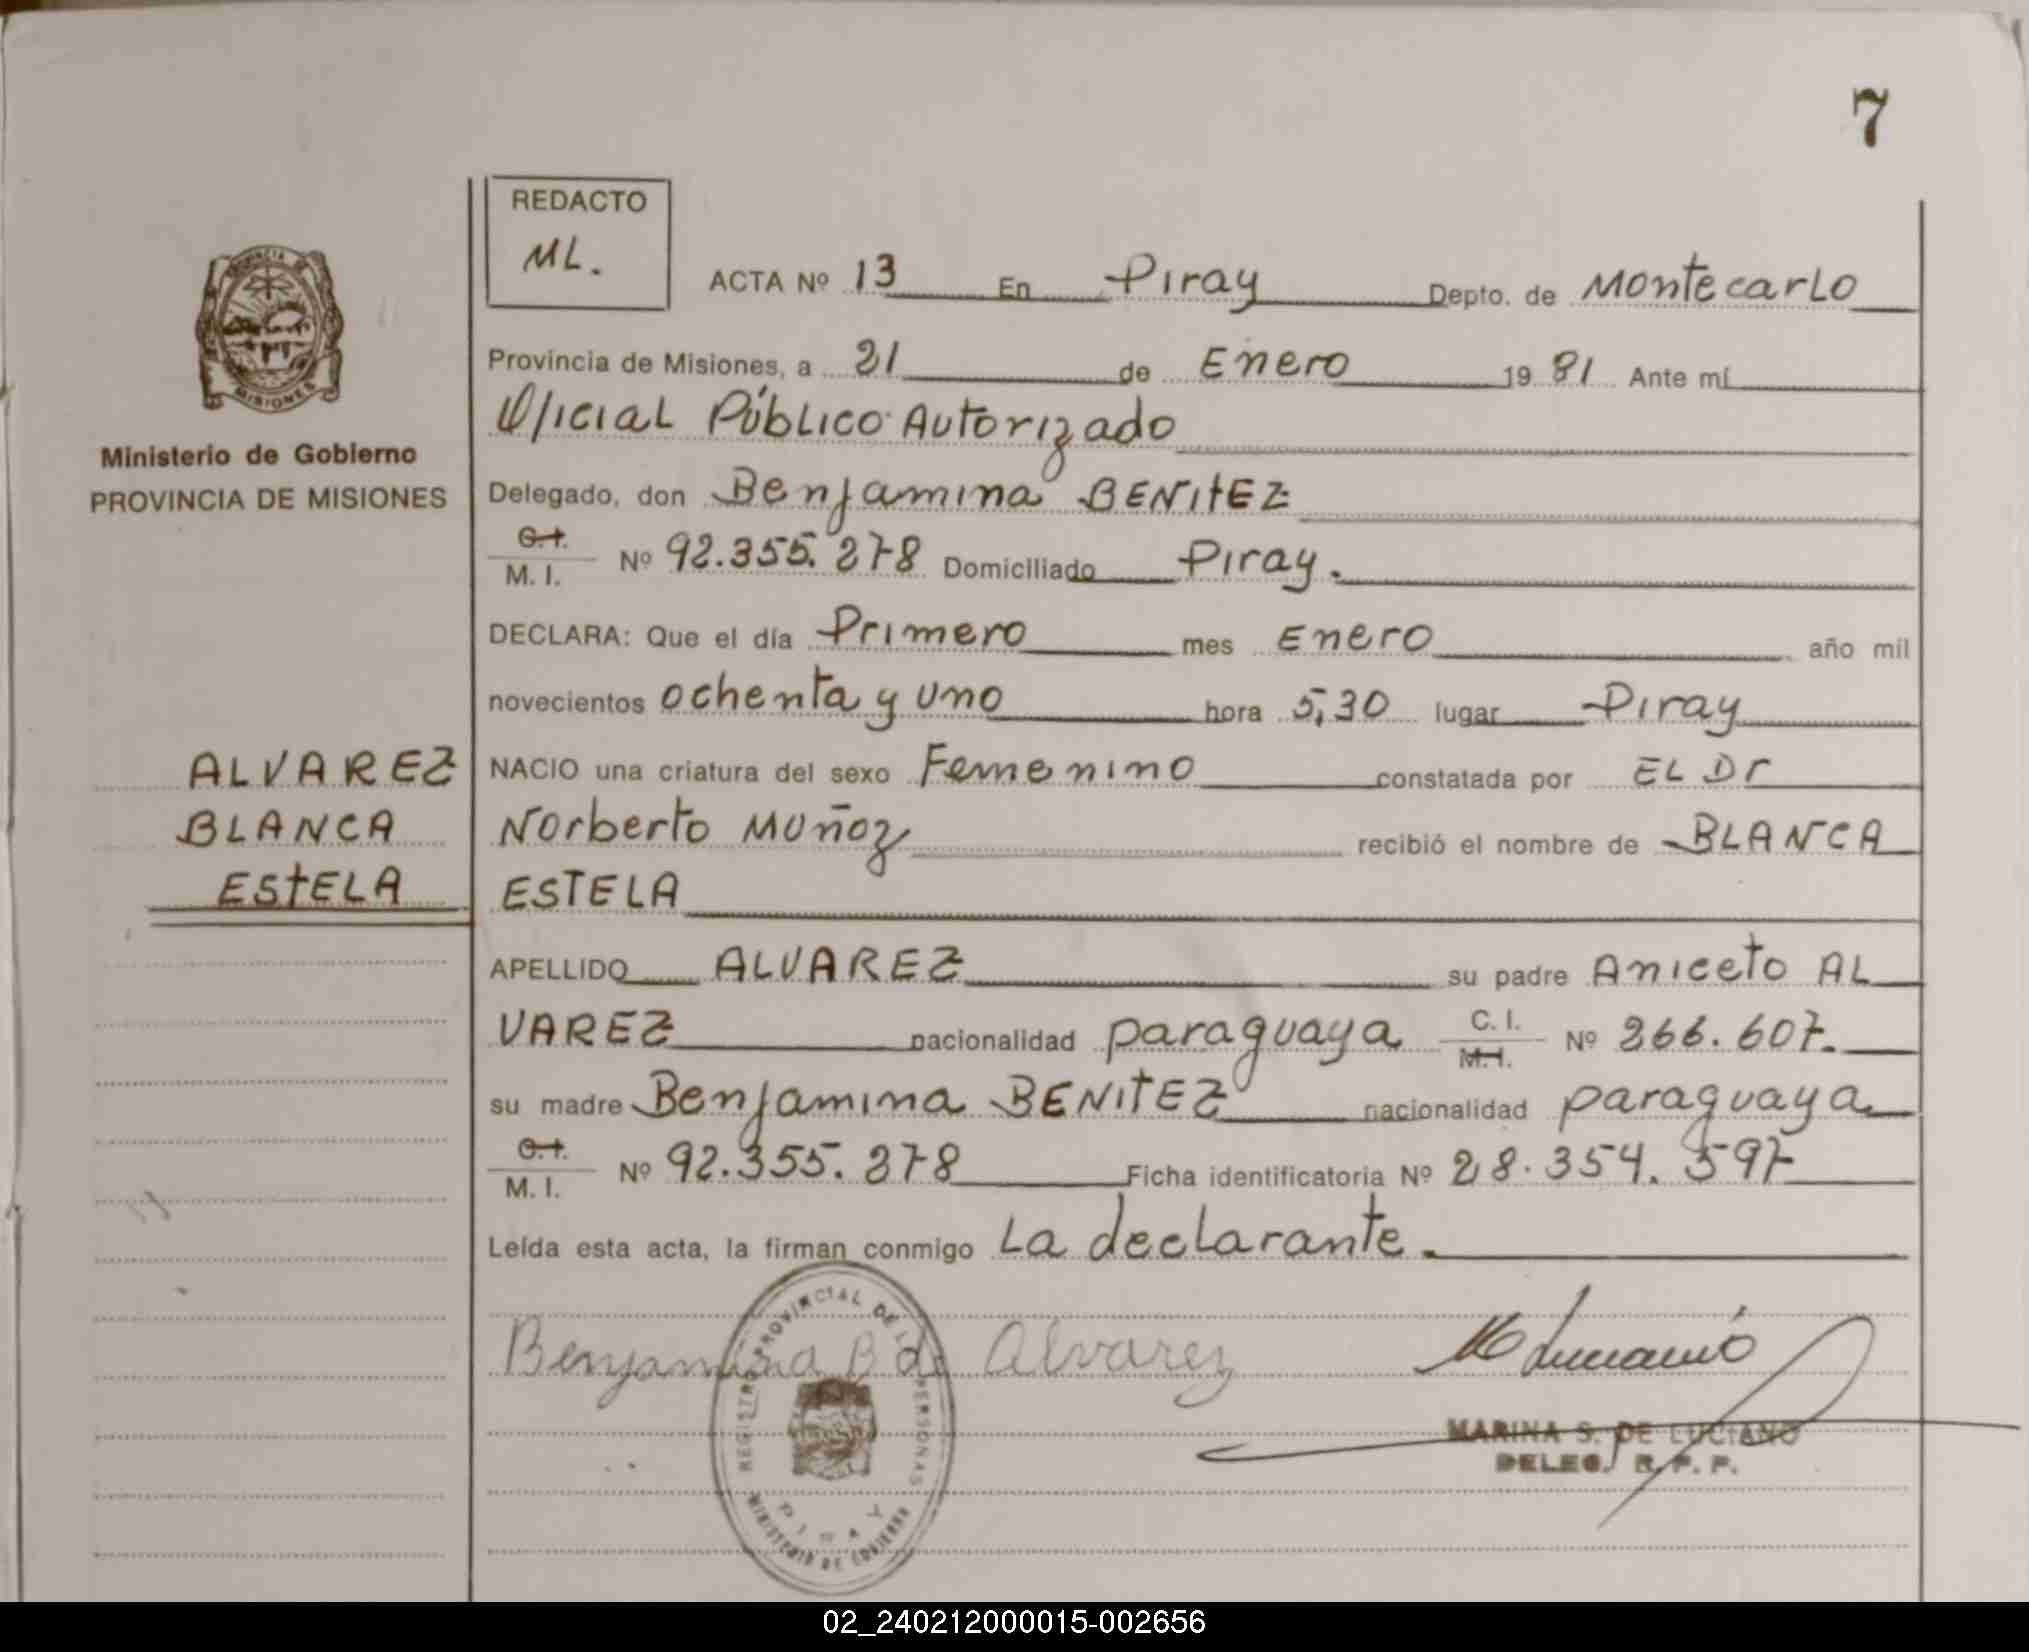 7
REDACTO
ML.
ACTA Nº 13 En Piray Depto. de Montecarlo
Provincia de Misiones, a 21 de Enero 1981 Ante mí
Oficial Público Autorizado
Ministerio de Gobierno
PROVINCIA DE MISIONES
Delegado, don Benjamina BENITEZ
C.I. M. I. Nº 92.355.278 Domiciliado Piray.
DECLARA: Que el día Primero mes Enero año mil
novecientos ochenta y uno hora 5,30 lugar Piray
ALVAREZ
BLANCA
ESTELA
NACIO una criatura del sexo Femenino constatada por EL Dr
Norberto Muñoz recibió el nombre de BLANCA
ESTELA
APELLIDO ALVAREZ su padre Aniceto AL
VAREZ nacionalidad paraguaya C. I. M.I. Nº 266.607.
su madre Benjamina BENITEZ nacionalidad paraguaya
C.I. M. I. Nº 92.355.278 Ficha identificatoria Nº 28.354.597
Leída esta acta, la firman conmigo La declarante.
Benjamina B de Alvarez
REGISTRO PROVINCIAL DE LAS PERSONAS
PIRAY
MINISTERIO DE GOBIERNO
MARINA S. DE LUCIANO
DELEG. R. P. P.
02_240212000015-002656